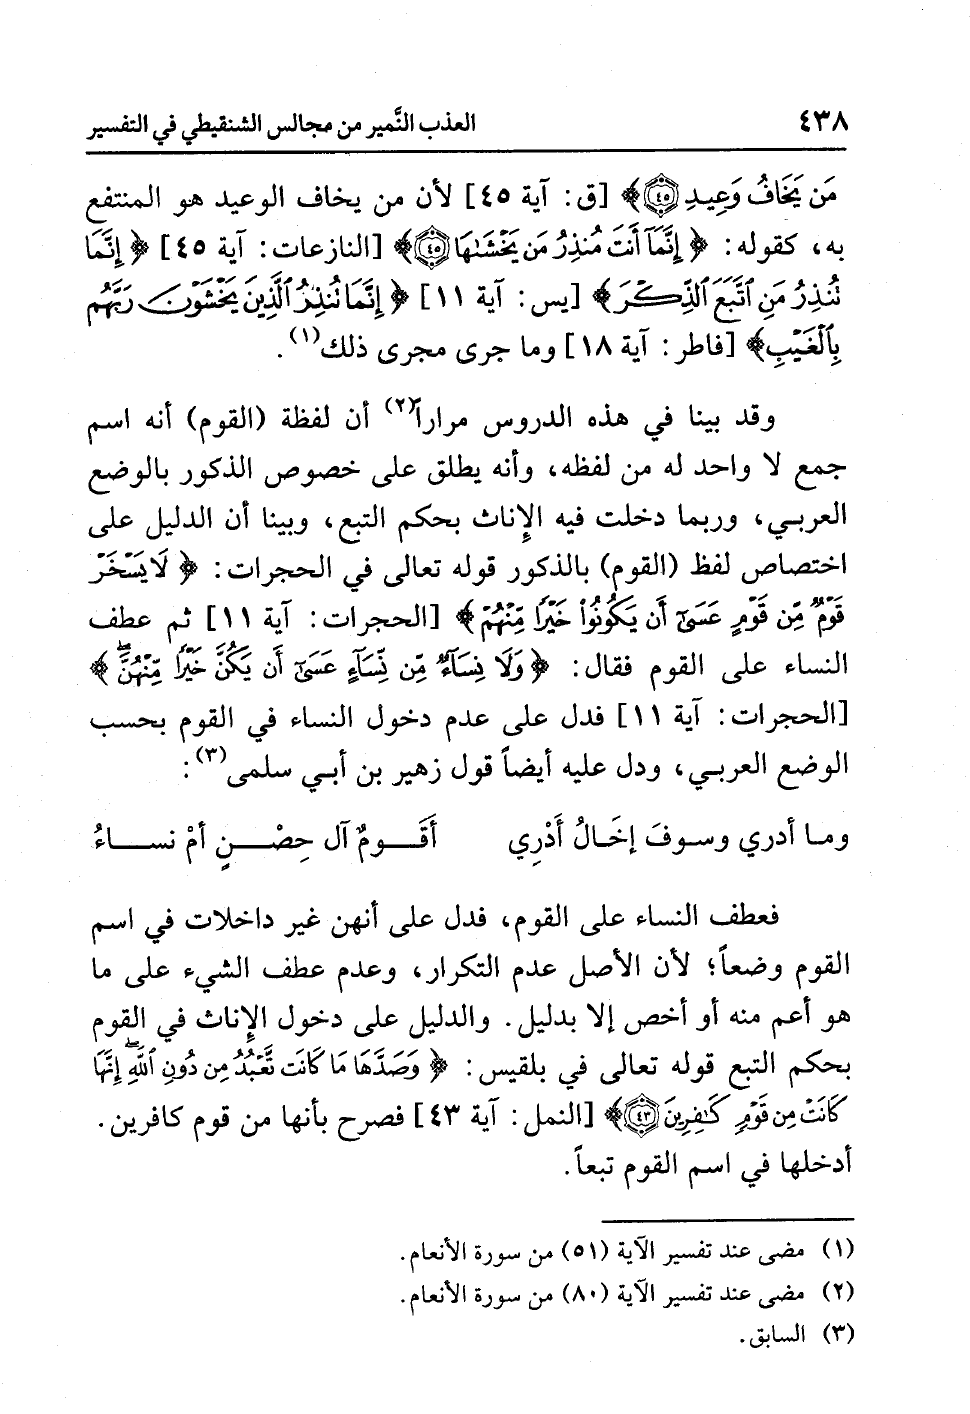 ٤٣٨ العذب النَّمير من مجالس الشنقيطي في التفسير
مَن يَخَافُ وَعِيدِ ﴿٤٥﴾﴾ [ق: آية ٤٥] لأن من يخاف الوعيد هو المنتفع
به، كقوله: ﴿إِنَّمَآ أَنتَ مُنذِرُ مَن يَخْشَىٰهَا ﴿٤٥﴾﴾ [النازعات: آية ٤٥] ﴿إِنَّمَا
تُنذِرُ مَنِ ٱتَّبَعَ ٱلذِّكْرَ﴾ [يس: آية ١١] ﴿إِنَّمَا تُنذِرُ ٱلَّذِينَ يَخْشَوْنَ رَبَّهُم
بِٱلْغَيْبِ﴾ [فاطر: آية ١٨] وما جرى مجرى ذلك(١).
وقد بينا في هذه الدروس مراراً(٢) أن لفظة (القوم) أنه اسم
جمع لا واحد له من لفظه، وأنه يطلق على خصوص الذكور بالوضع
العربي، وربما دخلت فيه الإناث بحكم التبع، وبينا أن الدليل على
اختصاص لفظ (القوم) بالذكور قوله تعالى في الحجرات: ﴿لَا يَسْخَرْ
قَوْمٌ مِّن قَوْمٍ عَسَىٰٓ أَن يَكُونُوا۟ خَيْرًا مِّنْهُمْ﴾ [الحجرات: آية ١١] ثم عطف
النساء على القوم فقال: ﴿وَلَا نِسَآءٌ مِّن نِّسَآءٍ عَسَىٰٓ أَن يَكُنَّ خَيْرًا مِّنْهُنَّ ۖ﴾
[الحجرات: آية ١١] فدل على عدم دخول النساء في القوم بحسب
الوضع العربي، ودل عليه أيضاً قول زهير بن أبي سلمى(٣):
وما أدري وسوفَ إخَالُ أَدْرِي أَقَومٌ آل حِصْنٍ أمْ نساءُ
فعطف النساء على القوم، فدل على أنهن غير داخلات في اسم
القوم وضعاً؛ لأن الأصل عدم التكرار، وعدم عطف الشيء على ما
هو أعم منه أو أخص إلا بدليل. والدليل على دخول الإناث في القوم
بحكم التبع قوله تعالى في بلقيس: ﴿وَصَدَّهَا مَا كَانَت تَّعْبُدُ مِن دُونِ ٱللَّهِ ۖ إِنَّهَا
كَانَتْ مِن قَوْمٍ كَـٰفِرِينَ ﴿٤٣﴾﴾ [النمل: آية ٤٣] فصرح بأنها من قوم كافرين.
أدخلها في اسم القوم تبعاً.
(١) مضى عند تفسير الآية (٥١) من سورة الأنعام.
(٢) مضى عند تفسير الآية (٨٠) من سورة الأنعام.
(٣) السابق.